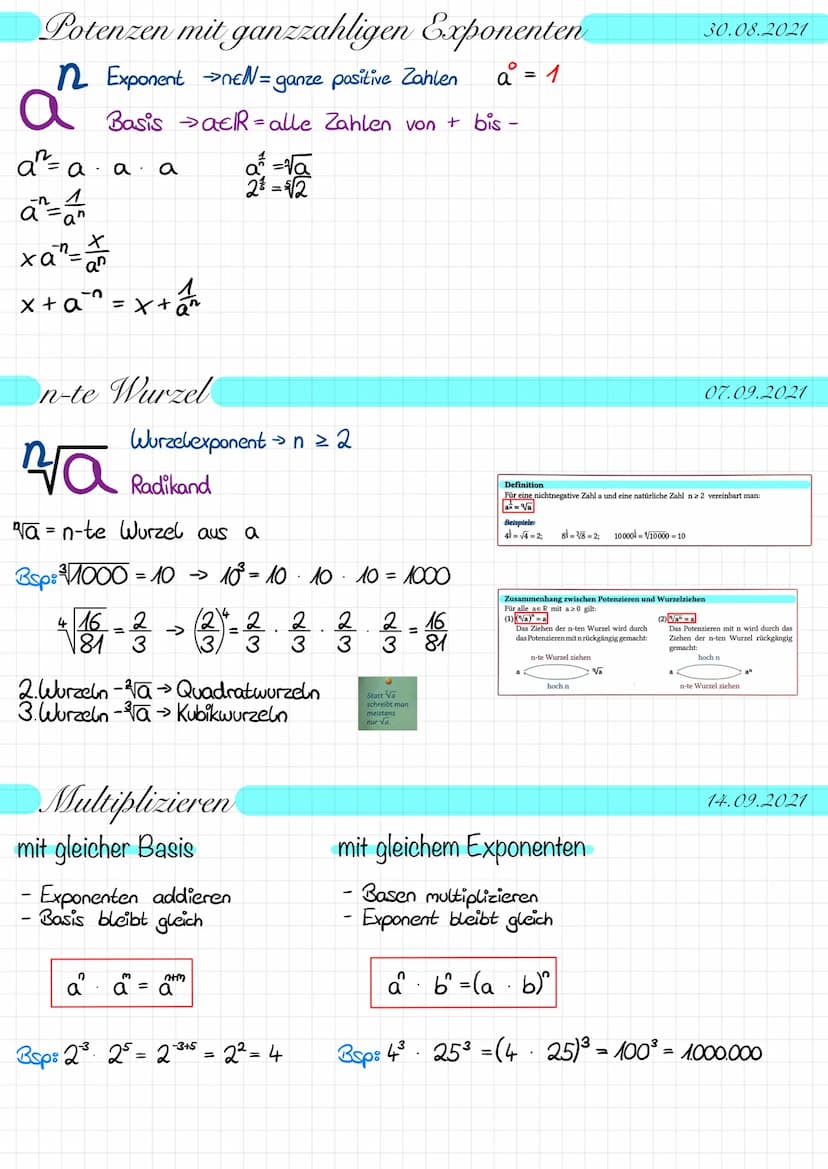 Potenzen mit ganzzahligen Exponenten 30.08.2021
aⁿ
Exponent → n∈ℕ = ganze positive Zahlen a⁰ = 1
Basis → a∈ℝ = alle Zahlen von + bis -
aⁿ = a · a · a
a^(1/n) = ⁿ√a
a⁻ⁿ = 1/aⁿ
xa⁻ⁿ = x/aⁿ
x + a⁻ⁿ = x + 1/aⁿ
n-te Wurzel 07.09.2021
ⁿ√a
Wurzelexponent → n ≥ 2
Radikand
ⁿ√a = n-te Wurzel aus a
Bsp: ³√1000 = 10 → 10³ = 10 · 10 · 10 = 1000
⁴√(16/81) = 2/3 → (2/3)⁴ = 2/3 · 2/3 · 2/3 · 2/3 = 16/81
2. Wurzeln - ²√a → Quadratwurzeln
3. Wurzeln - ³√a → Kubikwurzeln
Statt ²√a
schreibt man
meistens
nur √a.
Definition
Für eine nichtnegative Zahl a und eine natürliche Zahl n ≥ 2 vereinbart man:
a^(1/n) = ⁿ√a
Beispiele
4^(1/2) = √4 = 2; 8^(1/3) = ³√8 = 2; 10000^(1/4) = ⁴√10000 = 10
Zusammenhang zwischen Potenzieren und Wurzelziehen
Für alle a∈ℝ mit a ≥ 0 gilt:
(1) (ⁿ√a)ⁿ = a
Das Ziehen der n-ten Wurzel wird durch
das Potenzieren mit n rückgängig gemacht:
n-te Wurzel ziehen
a ⁿ√a
hoch n
(2) ⁿ√aⁿ = a
Das Potenzieren mit n wird durch das
Ziehen der n-ten Wurzel rückgängig
gemacht:
hoch n
a aⁿ
n-te Wurzel ziehen
Multiplizieren 14.09.2021
mit gleicher Basis
- Exponenten addieren
- Basis bleibt gleich
aⁿ · aᵐ = aⁿ⁺ᵐ
Bsp: 2⁻³ · 2⁵ = 2⁻³⁺⁵ = 2² = 4
mit gleichem Exponenten
- Basen multiplizieren
- Exponent bleibt gleich
aⁿ · bⁿ = (a · b)ⁿ
Bsp: 4³ · 25³ = (4 · 25)³ = 100³ = 1.000.000